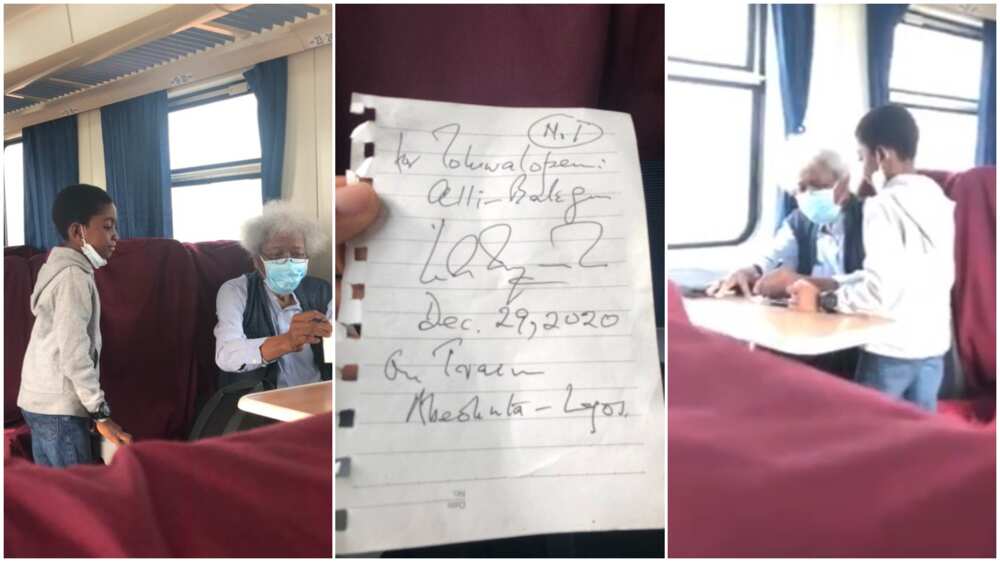 No 1
for Toluwalopemi
Alli-Balogun
Dec. 29, 2020
On Train
Abeokuta – Lagos.
Date
No.